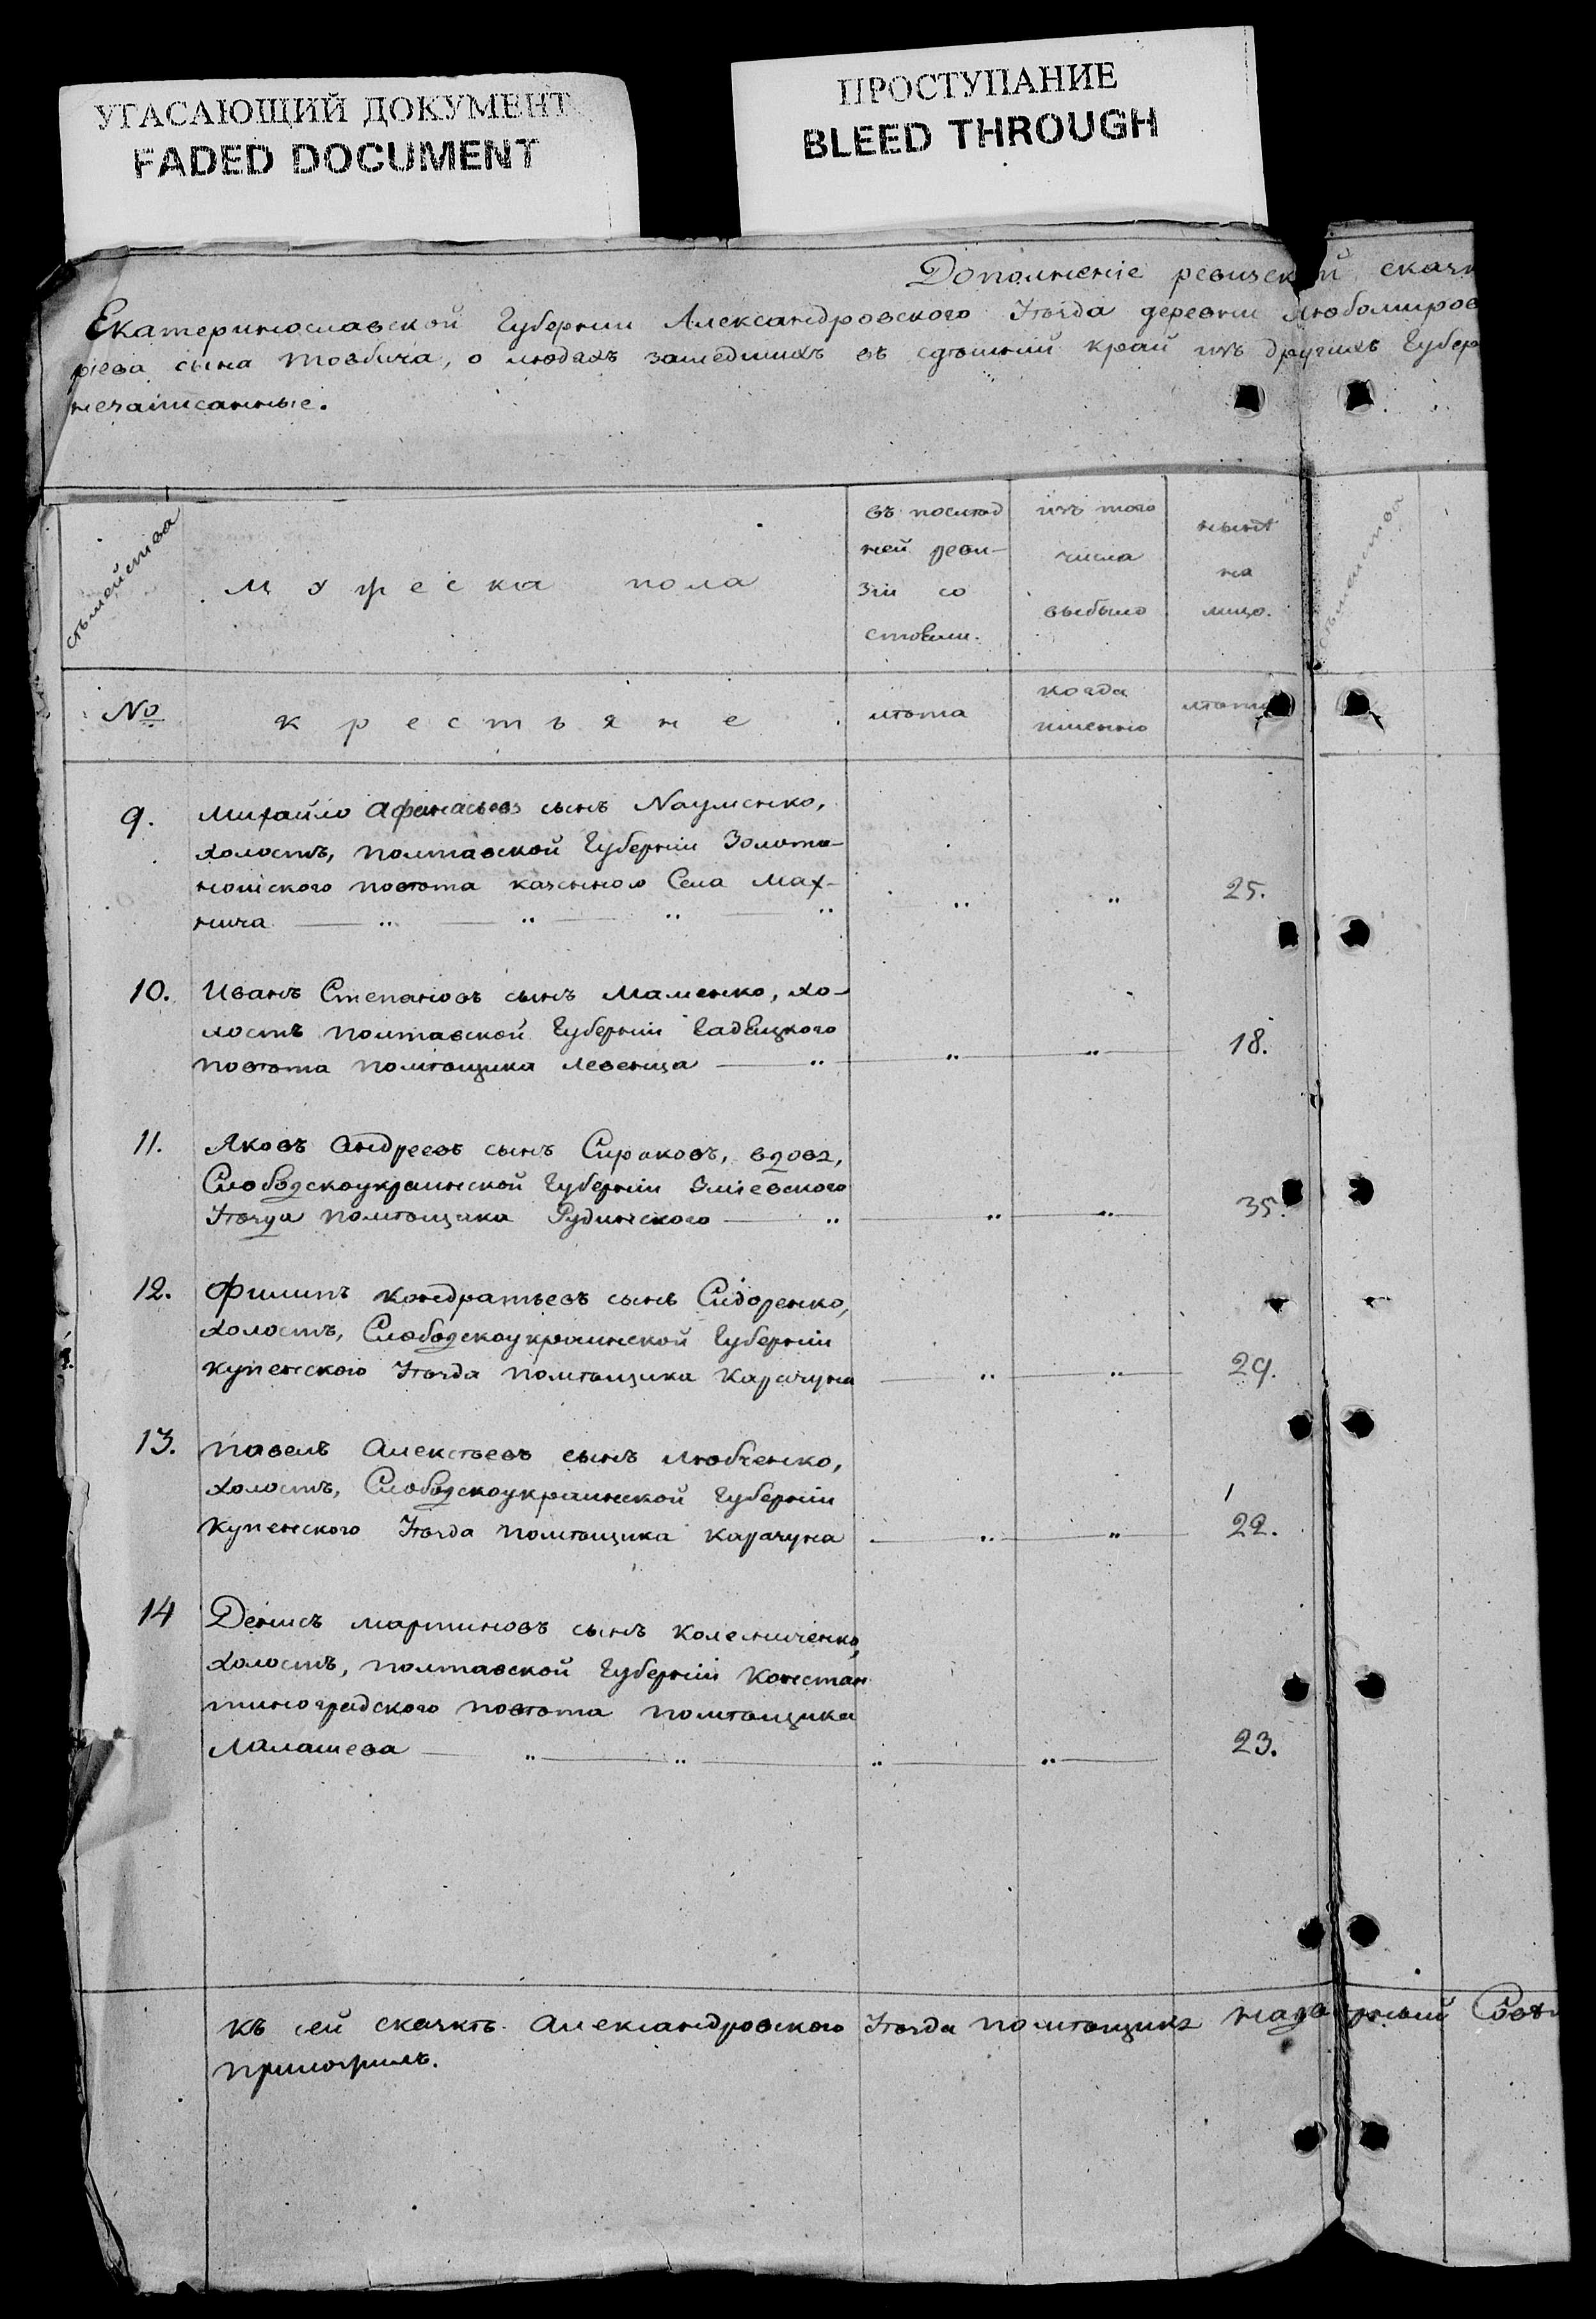 УГАСАЮЩИЙ ДОКУМЕНТ
FADED DOCUMENT
ПРОСТУПАНИЕ
BLEED THROUGH
Дополненіе ревизской сказк
Екатеринославской Губерніи Александровского Уѣзда деревни Любомиров
ріева сына Товбича, о людяхъ зашедшихъ въ сдѣшній край изъ другихъ Губер
незаписанные.
сѣмейства
мужеска пола
въ послѣд
ней реви-
зіи со
стояли.
изъ того
числа
выбыло
нынѣ
на
лицо.
сѣмейства
№
крестьяне
лѣта
когда
именно
лѣта
9. Михайло Афанасьевъ сынъ Науменко,
холостъ, Полтавской Губерніи Золото-
ношского повѣта казенного Села Мах-
нича „ „ „ „ „ „ 25.
10. Иванъ Степановъ сынъ Маменко, хо-
лостъ Полтавской Губерніи Гадяцкого
повѣта помѣщика Левенца „ „ „ 18.
11. Яковъ Андреевъ сынъ Сираковъ, вдовъ,
Слободскоукраинской Губерніи Зміевского
Уѣзда помѣщика Рудинского „ „ „ 35.
12. Филипъ Кондратьевъ сынъ Сидоренко,
холостъ, Слободскоукраинской Губерніи
Купенского Уѣзда помѣщика Карачуна „ „ 29.
13. Павелъ Алексѣевъ сынъ Любченко,
холостъ, Слободскоукраинской Губерніи
Купенского Уѣзда помѣщика Карачуна „ „ 22.
14 Денисъ Мартиновъ сынъ Колесниченко,
холостъ, Полтавской Губерніи Констан
тиноградского повѣта помѣщика
Лалашева „ „ „ „ 23.
Къ сей сказкѣ Александровского Уѣзда помѣщикъ надворный Совѣт
приложилъ.